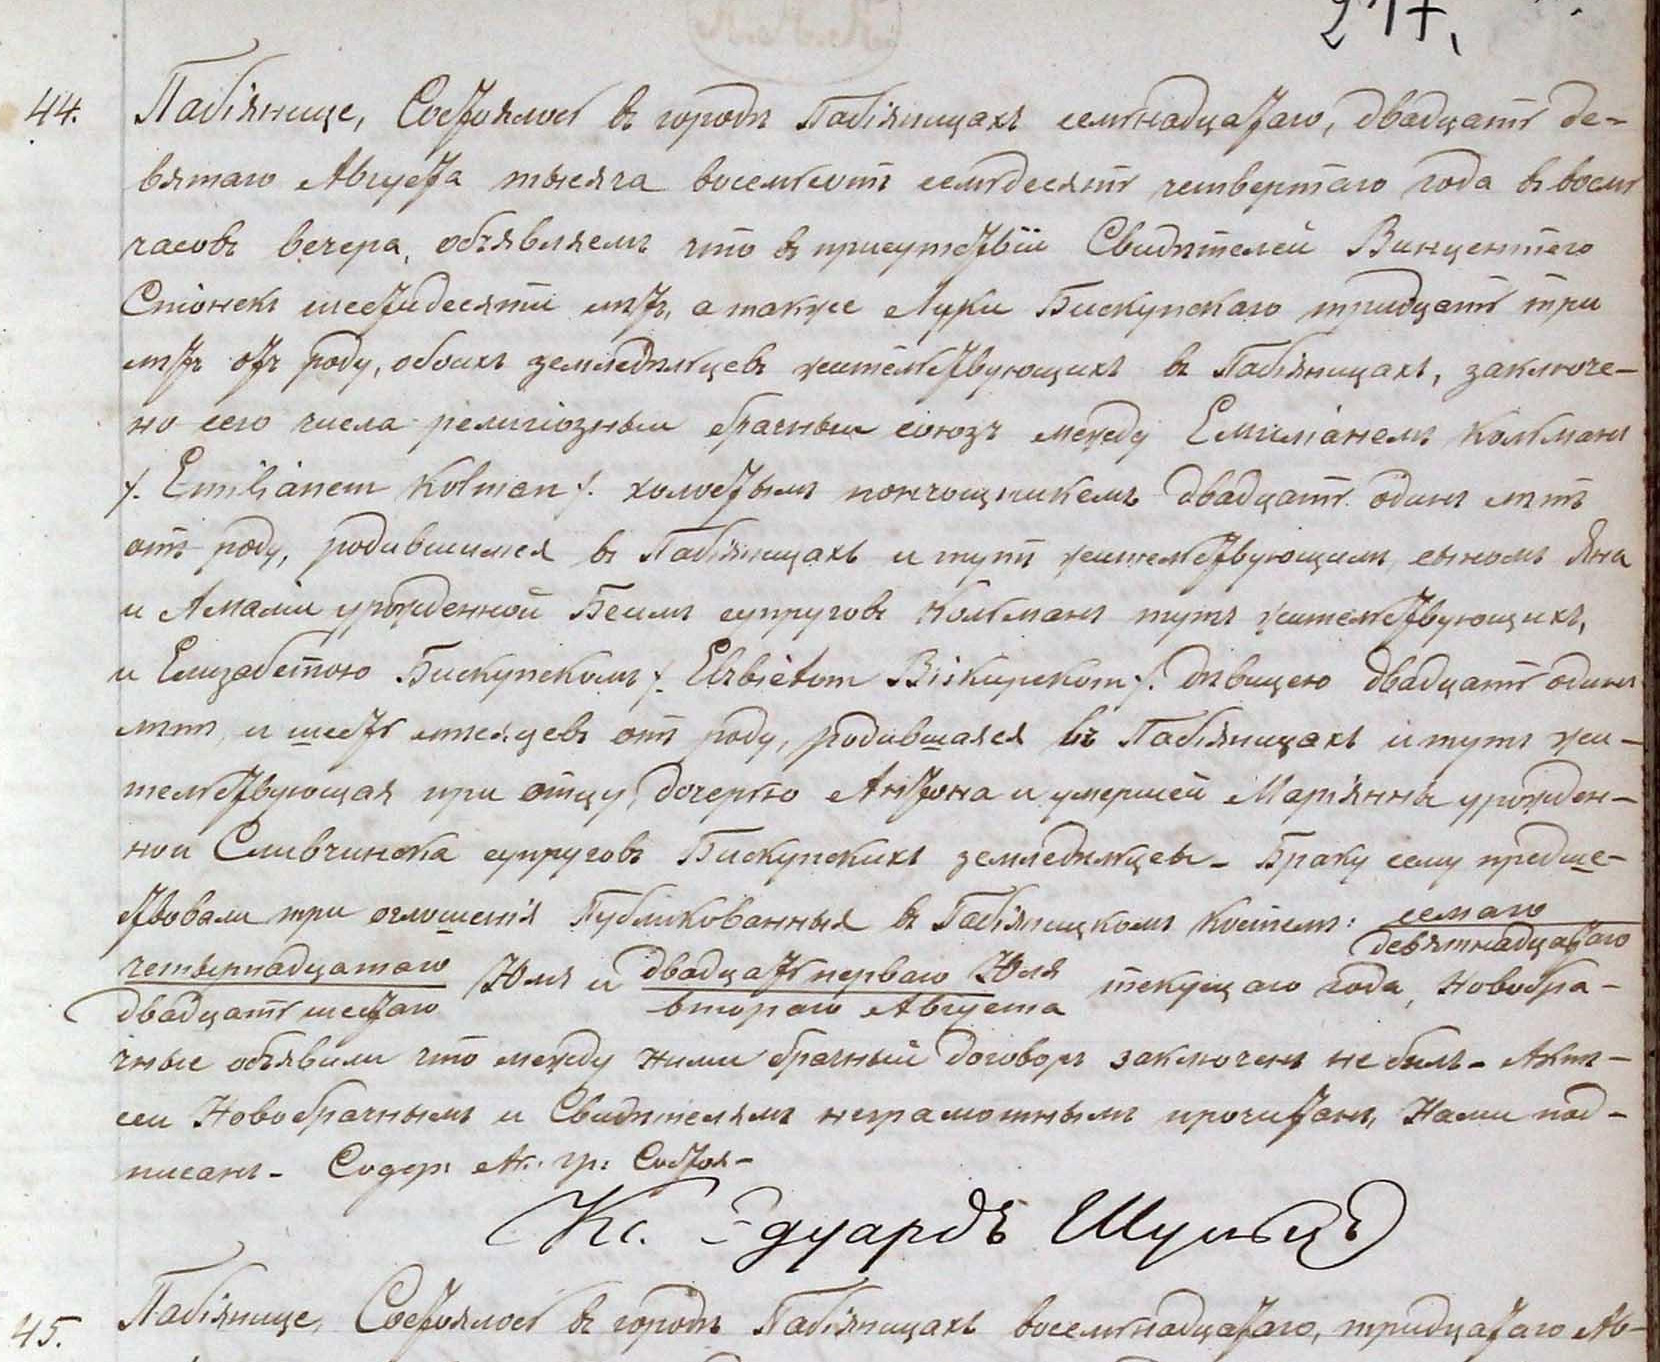 247.
44. Пабіянице, Состоялось въ городѣ Пабіяницахъ семьнадцатаго, двадцать де-
вятаго Августа тысяча восемьсотъ семьдесятъ четвертаго года въ восмь
часовъ вечера, объявляемъ что въ присутствіи Свидѣтелей Винцентего
Стонекъ шестидесяти лѣтъ, а также Луки Бискупскаго тридцать три
лѣтъ отъ роду, обоихъ земледѣльцевъ жительствующихъ въ Пабіяницахъ, заключе-
но сего числа религіозный брачный союзъ между Емиліанемъ Кольманъ
/. Emilianem Kolman /. холостымъ пончошникемъ двадцать одинъ лѣтъ
отъ роду, родившимся въ Пабіяницахъ и тутъ жительствующимъ, сыномъ Яна
и Амаліи урожденной Беимъ супруговъ Кольманъ тутъ жительствующихъ,
и Елизабетою Бискупскомъ /. Elzbietom Biskupskom /. дѣвицею двадцать одинъ
лѣтъ и шесть мѣсяцевъ отъ роду, родившаяся въ Пабіяницахъ и тутъ жи-
тельствующая при отцу, дочерью Антона и умершей Маріянны урожден-
ной Сливчинска супруговъ Бискупскихъ земледѣльцевъ - Браку сему предше-
ствовали три оглошенія Публикованныя въ Пабіяницкомъ Костелѣ: семаго
девятнадцатаго
четырнадцатаго Юля и двадцать перваго Юля текущаго года, Новобра-
двадцать шестаго втораго Августа
чные объявили что между ними брачный договоръ заключенъ не былъ - Актъ
сей Новобрачнымъ и Свидѣтелямъ неграмотнымъ прочитанъ, Нами под-
писанъ - Содер: А: гр: Состоя-
Кс. Эдуардъ Шульцъ
45. Пабіянице, Состоялось въ городѣ Пабіяницахъ восемьнадцатаго, тридцатаго Ав-